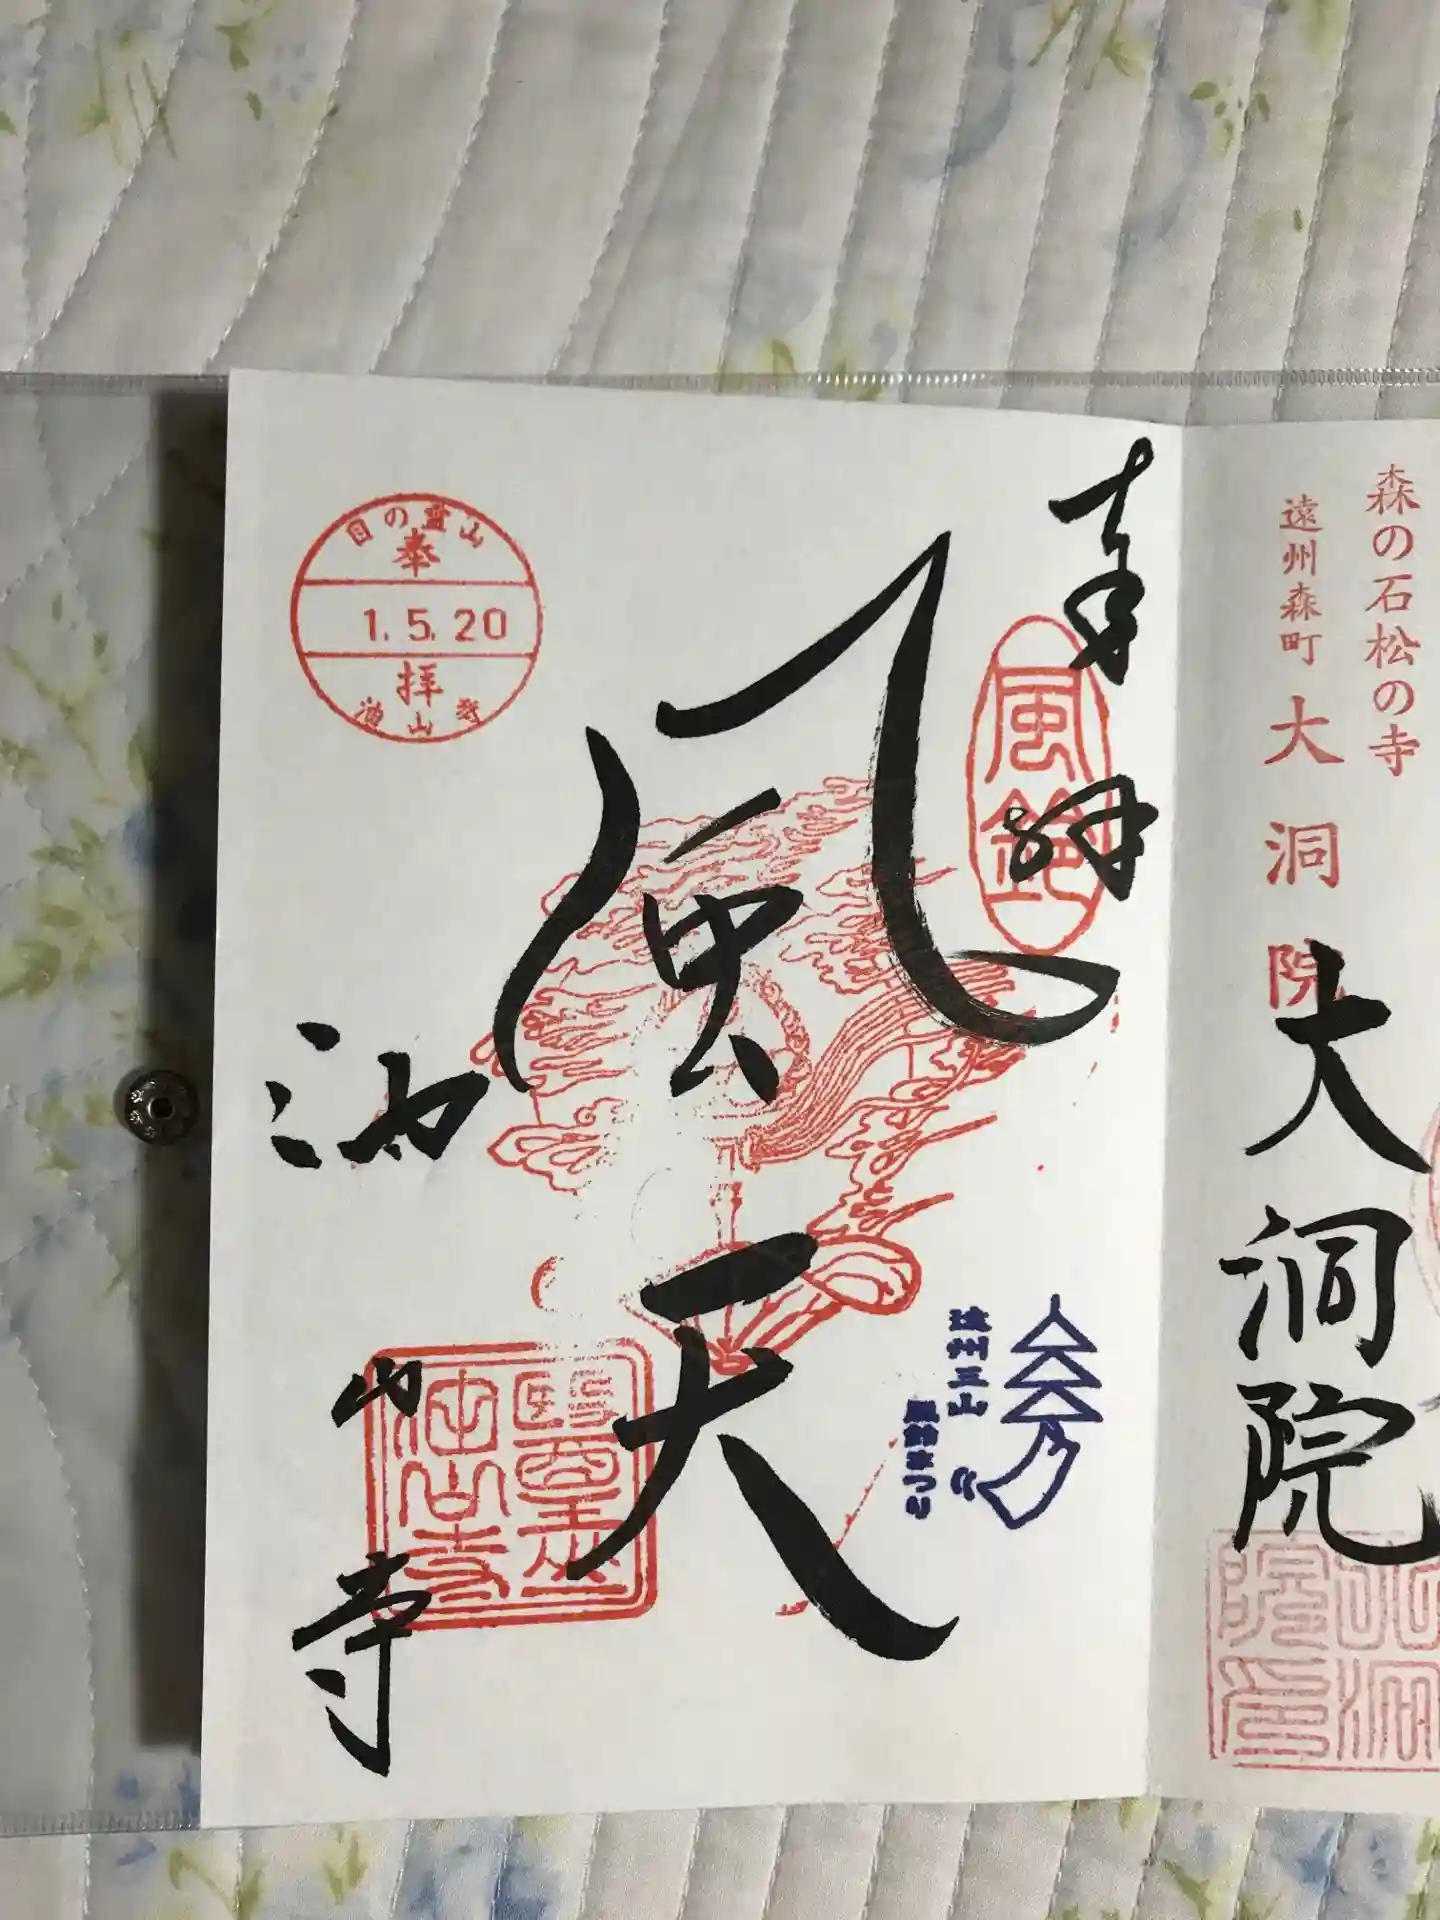 森の石松の寺
遠州森町 大洞院
大洞院
奉拝
風鈴
風天
遠州三山
風鈴まつり
目の霊山
奉
1.5.20
拝
池山寺
油山寺
油山寺